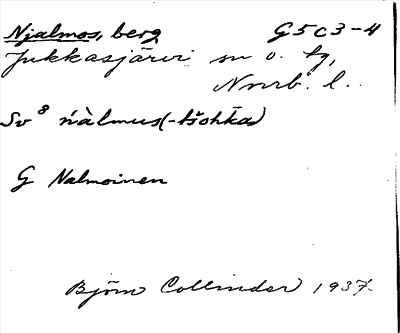 Njalmos, berg G5c3-4
Jukkasjärvi sn o. tg,
Nrrb. l.
Sv 8 ńàlmus(-tšohka)
G Nalmoinen
Björn Collinder 1937.